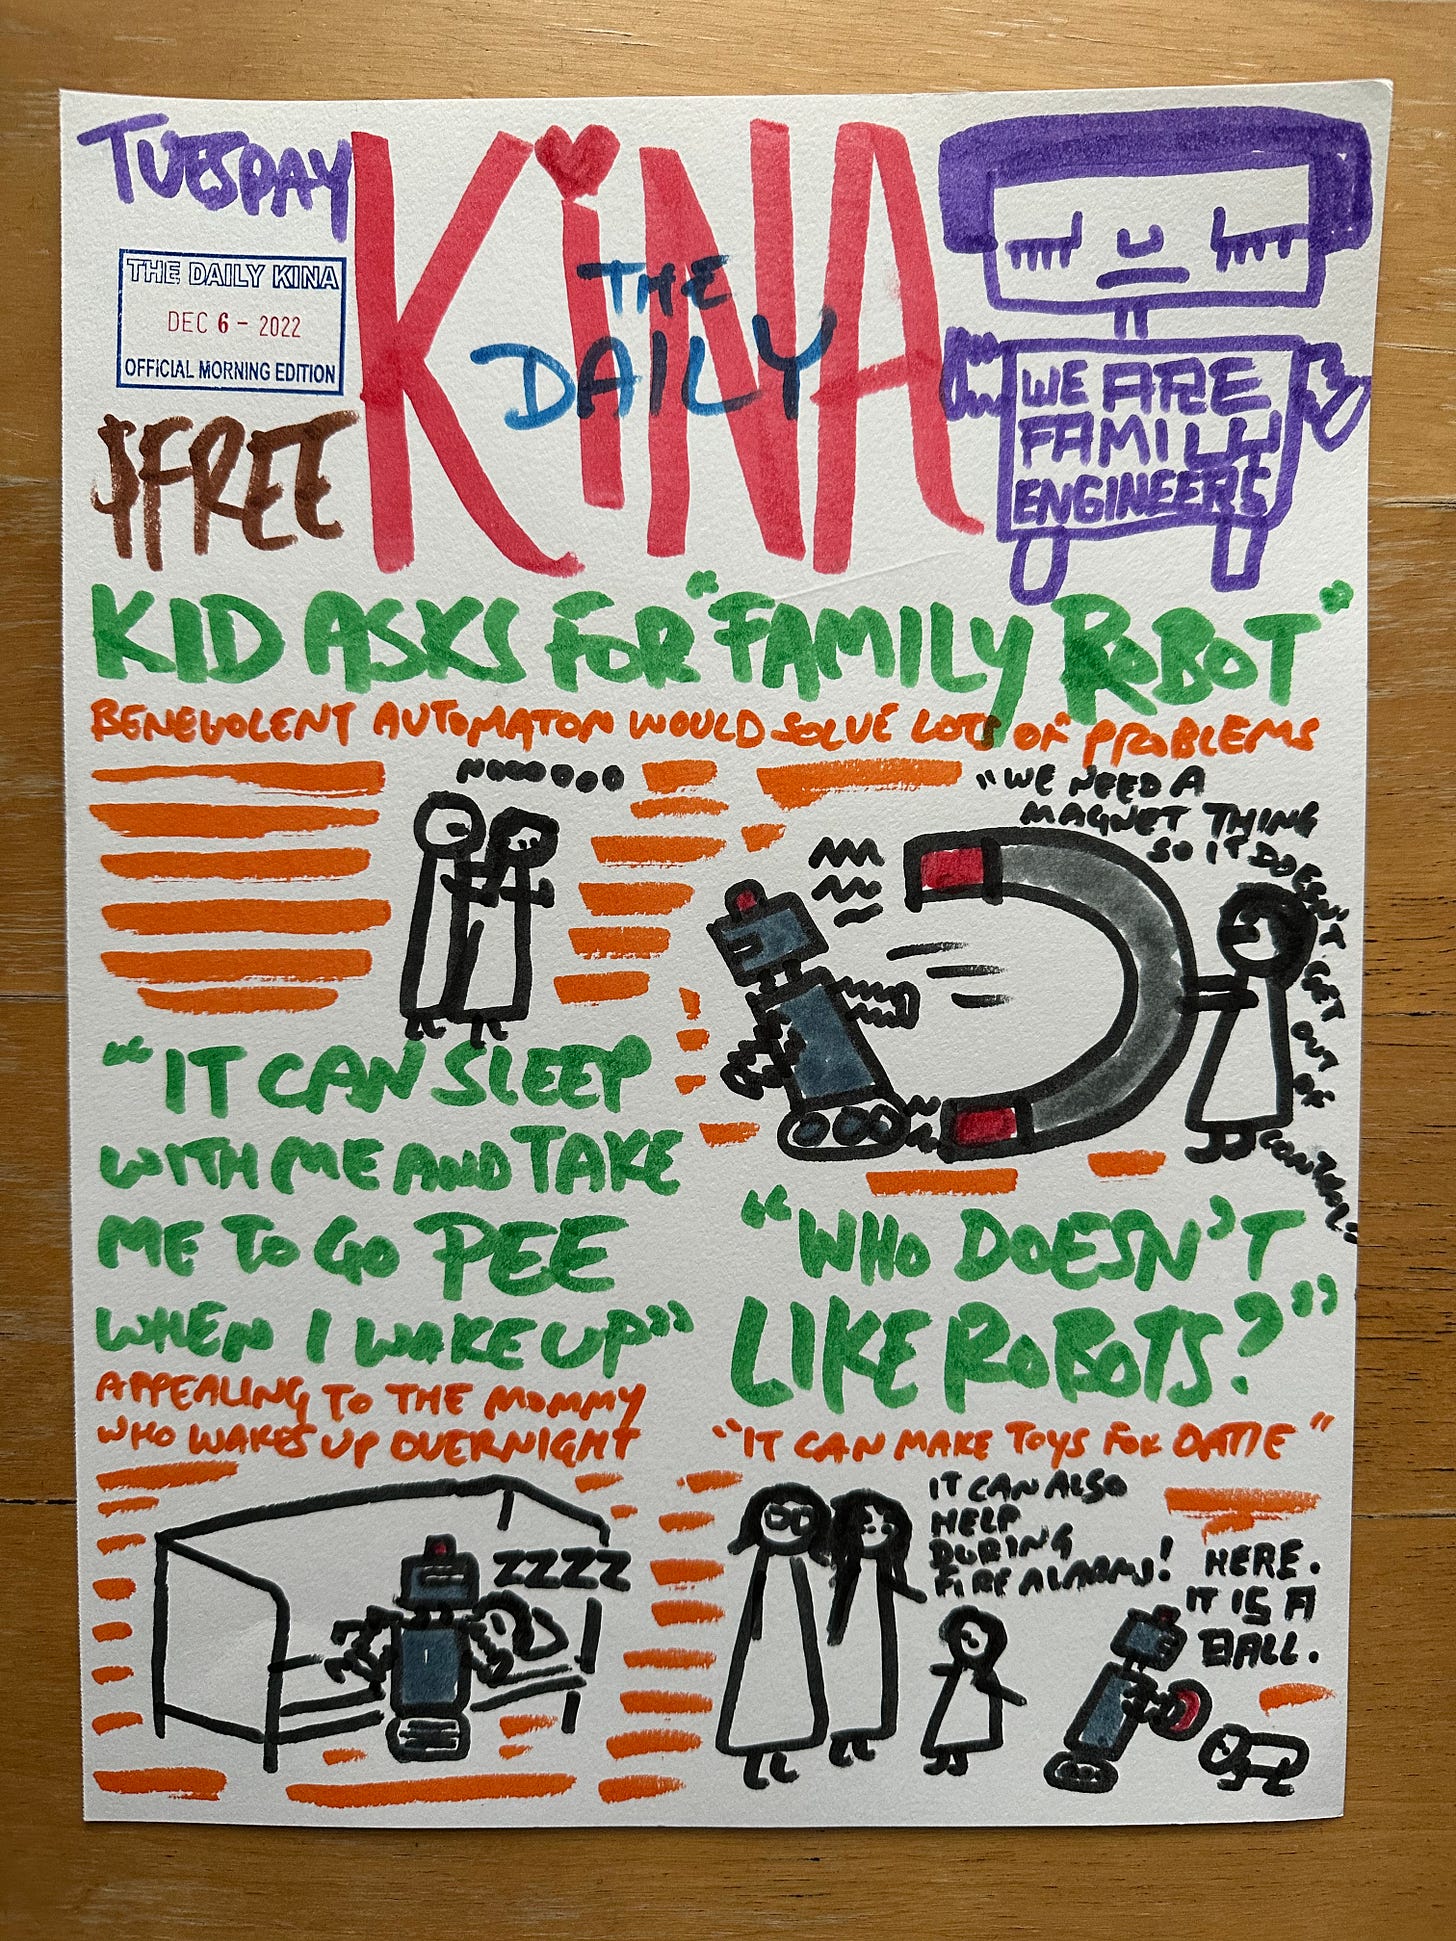 TUESDAY
THE DAILY KINA
DEC 6 - 2022
OFFICIAL MORNING EDITION
$FREE
KiNA
THE
DAILY
WE ARE
FAMILY
ENGINEERS
KID ASKS FOR "FAMILY ROBOT"
BENEVOLENT AUTOMATON WOULD SOLVE LOTS OF PROBLEMS
NOOOOOO
"IT CAN SLEEP
WITH ME AND TAKE
ME TO GO PEE
WHEN I WAKE UP"
APPEALING TO THE MOMMY
WHO WAKES UP OVERNIGHT
ZZZZ
"WE NEED A
MAGNET THING
SO IT DOESN'T GET OUT OF CONTROL"
"WHO DOESN'T
LIKE ROBOTS?"
"IT CAN MAKE TOYS FOR DATIE"
IT CAN ALSO
HELP
DURING
FIRE ALARMS!
HERE.
IT IS A
BALL.